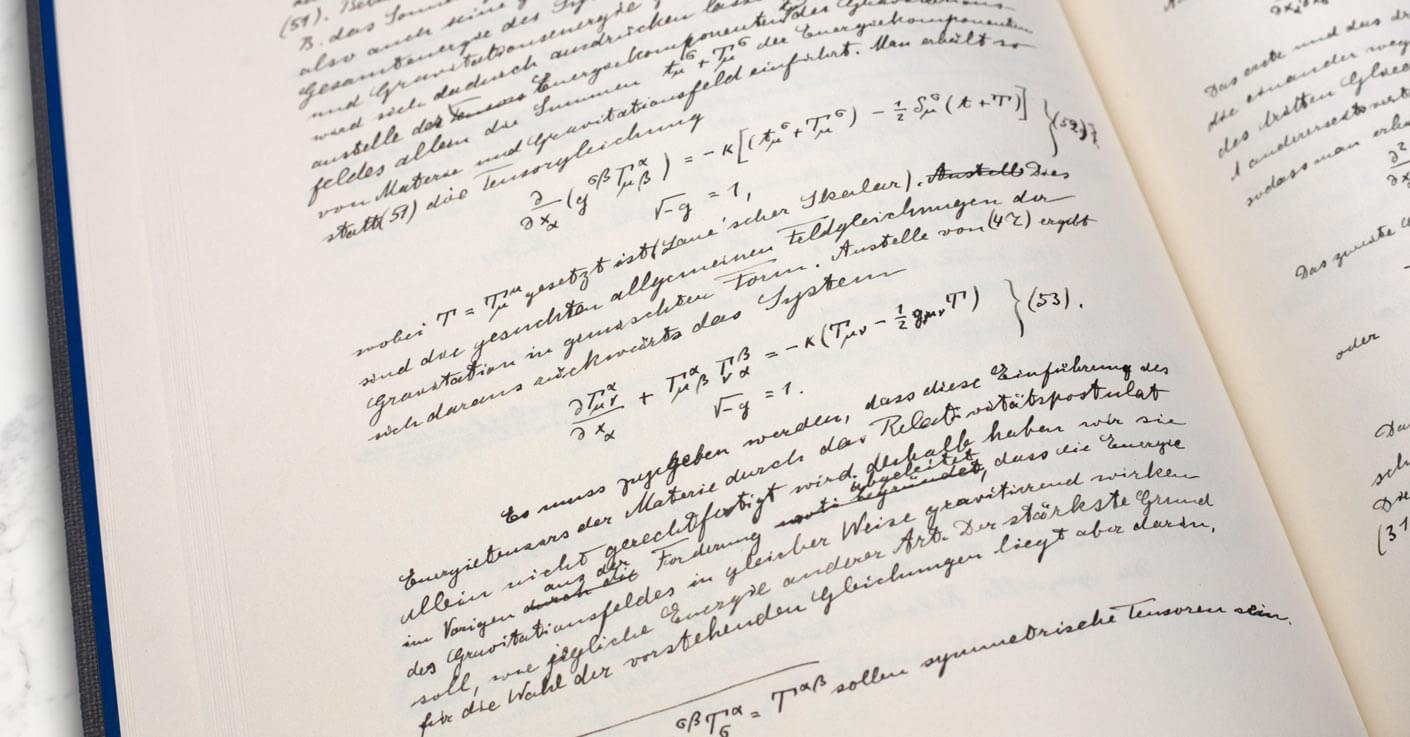 (51). Be
B. das Sonne
also auch seine
Gesamtenergie des Sy
und Gravitationsenergie
wird sich dadurch ausdrücken lass
anstelle der Tensors Energiekomponenten des Gravitations-
feldes allein die Summen t_μ^σ + T_μ^σ der Energiekomponenten
von Materie und Gravitationsfeld einführt. Man erhält so
statt (51) die Tensorgleichung
∂/∂x_α (g^{σβ} Γ_{μβ}^α) = −κ[(t_μ^σ + T_μ^σ) − ½ δ_μ^σ (t + T)] } (52),
√−g = 1,
wobei T = T_μ^μ gesetzt ist (Laue'scher Skalar). Anstelle Dies
sind die gesuchten allgemeinen Feldgleichungen der
Gravitation in gemischten Form. Anstelle von (47) ergibt
sich daraus rückwärts das System
∂Γ_{μν}^α/∂x_α + Γ_{μβ}^α Γ_{να}^β = −κ(T_{μν} − ½ g_{μν} T) } (53).
√−g = 1.
Es muss zugegeben werden, dass diese Einführung des
Energietensors der Materie durch das Relativitätspostulat
allein nicht gerechtfertigt wird. deshalb haben wir sie
im Vorigen durch die aus der Forderung abgeleitet, dass die Energie
des Gravitationsfeldes in gleicher Weise gravitierend wirken
soll, wie jegliche Energie anderer Art. Der stärkste Grund
für die Wahl der vorstehenden Gleichungen liegt aber darin,
^{σβ} T_σ^α = T^{αβ} sollen symmetrische Tensoren sein.
Das erste und das dr
die einander weg
des dritten Glied
andererseits
sodass man erhä
∂²
Das zweite
oder
Da
sch
(31